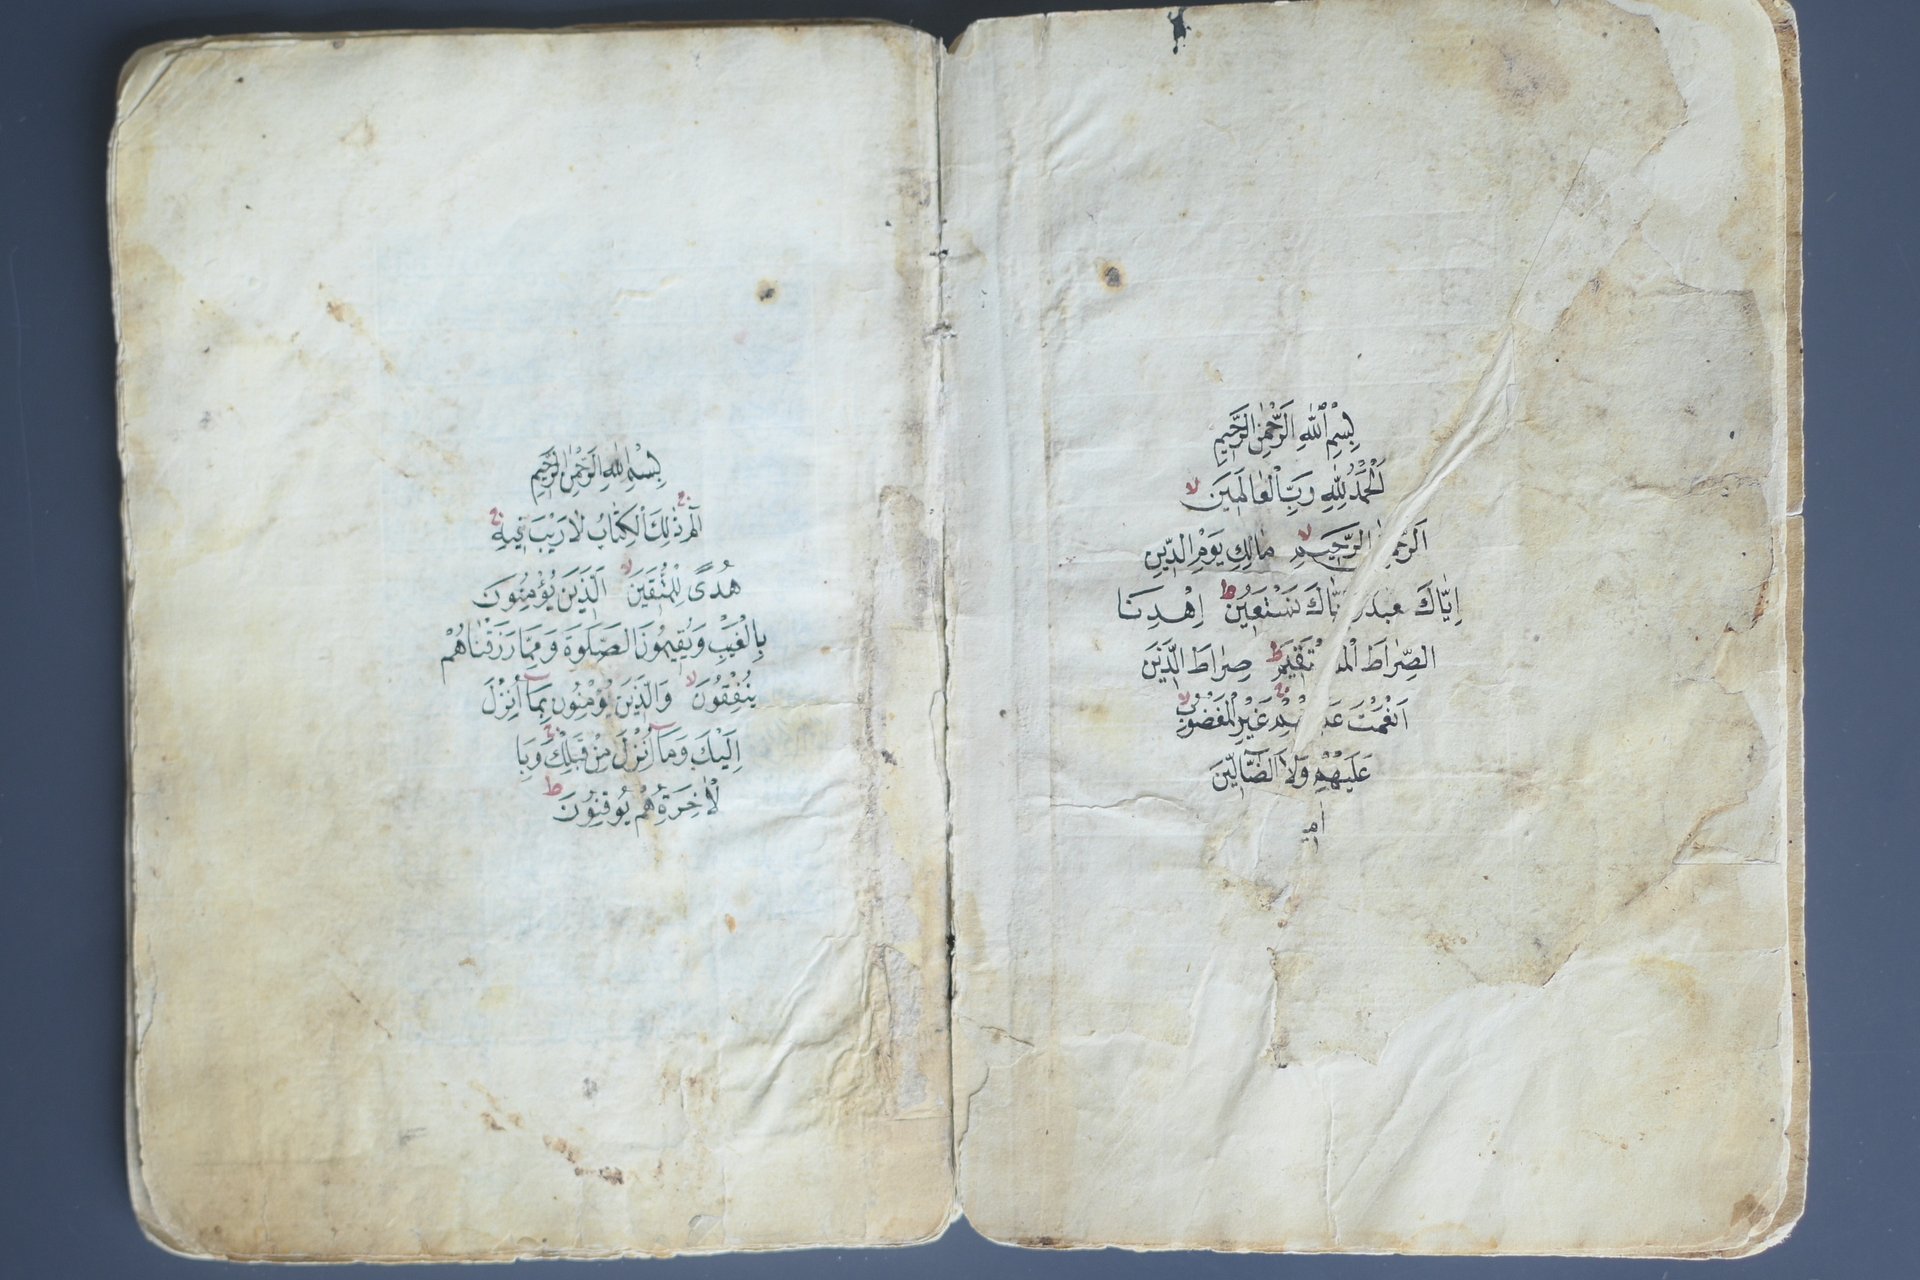 بِسْمِ اللّٰهِ الرَّحْمٰنِ الرَّحِيمِ
اَلْحَمْدُ لِلّٰهِ رَبِّ الْعَالَمِينَ لا
اَلرَّحْمٰ الرَّحِيمِ لا مَالِكِ يَوْمِ الدِّينِ
اِيَّاكَ نَعْبُدُ اِيَّاكَ نَسْتَعِينُ ط اِهْدِنَا
الصِّرَاطَ الْمُسْتَقِيمَ ط صِرَاطَ الَّذِينَ
اَنْعَمْتَ عَلَيْهِمْ غَيْرِ الْمَغْضُوبِ لا
عَلَيْهِمْ وَلَا الضَّآلِّينَ
امي
بِسْمِ اللّٰهِ الرَّحْمٰنِ الرَّحِيمِ
الٓمٓ ج ذٰلِكَ الْكِتَابُ لَا رَيْبَ فِيهِ ج
هُدًى لِلْمُتَّقِينَ لا اَلَّذِينَ يُؤْمِنُونَ
بِالْغَيْبِ وَيُقِيمُونَ الصَّلٰوةَ وَمِمَّا رَزَقْنَاهُمْ
يُنْفِقُونَ لا وَالَّذِينَ يُؤْمِنُونَ بِمَآ اُنْزِلَ
اِلَيْكَ وَمَآ اُنْزِلَ مِنْ قَبْلِكَ ج وَبِا
لْاٰخِرَةِ هُمْ يُوقِنُونَ ط